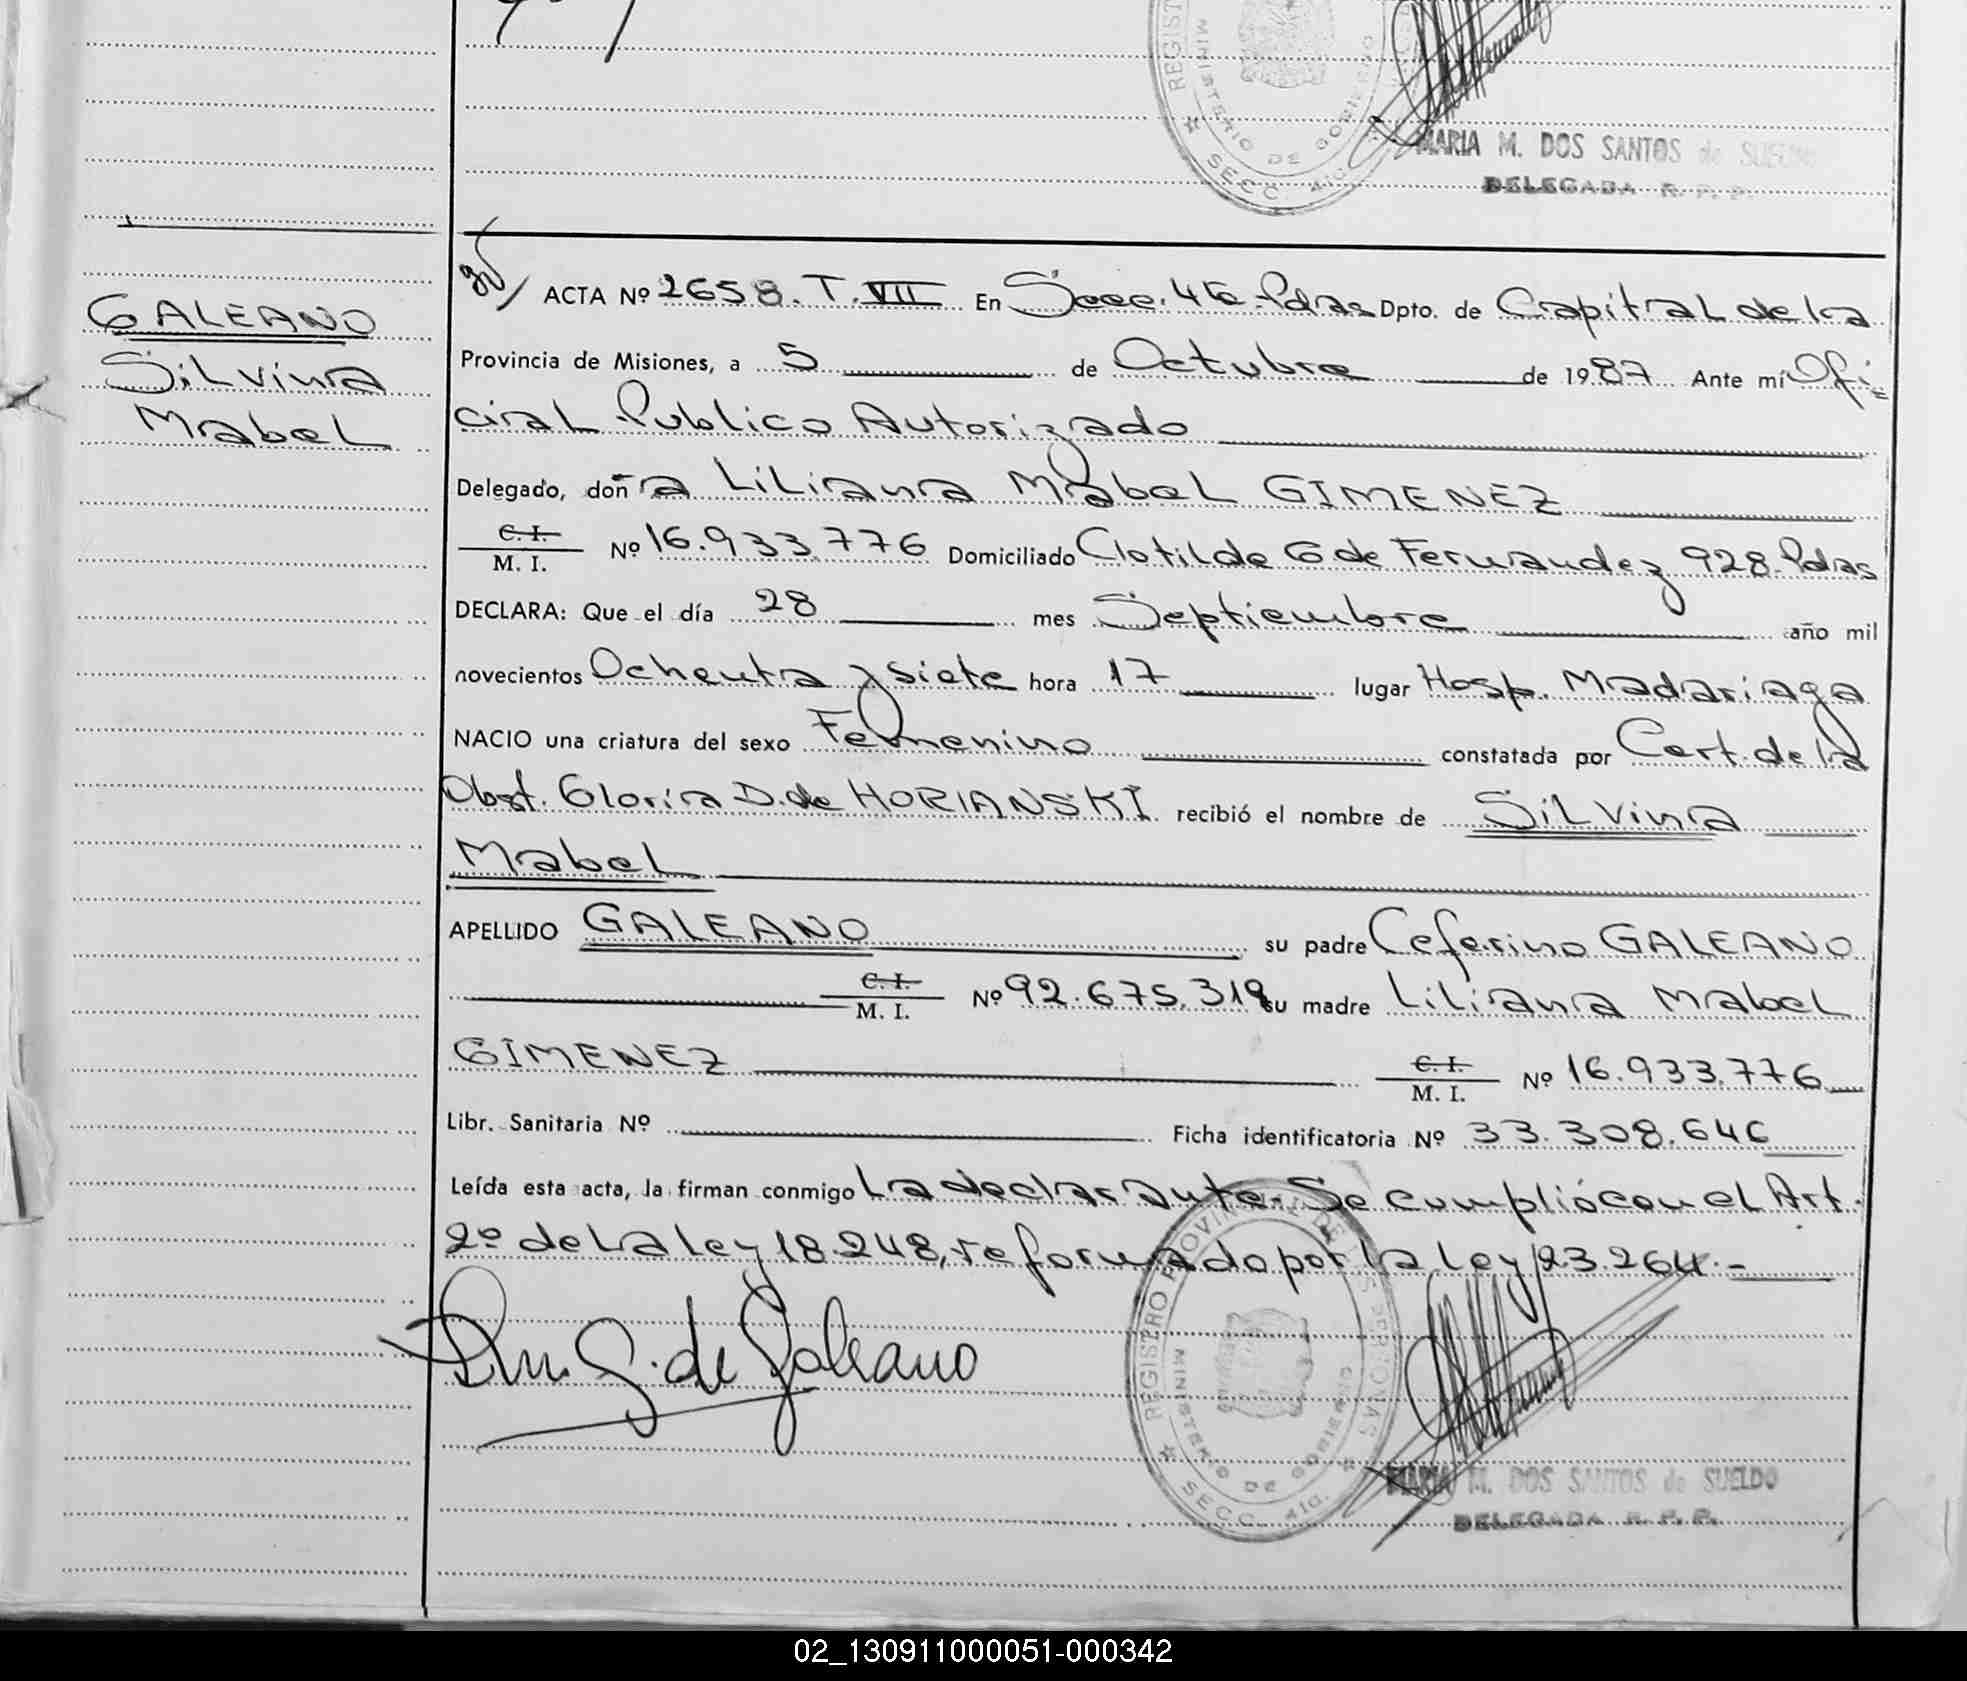 REGIST
MINISTERIO DE GOBIERNO
SECC. 4ta.
MARIA M. DOS SANTOS de SUELDO
DELEGADA R. P. P.
GALEANO
Silvina
Mabel
ACTA Nº 2658. T. VII En Secc. 4ta Pdas Dpto. de Capital de la
Provincia de Misiones, a 5 de Octubre de 1987 Ante mí Ofi-
cial Publico Autorizado
Delegado, doña Liliana Mabel GIMENEZ
C. I.
M. I. Nº 16.933.776 Domiciliado Clotilde G de Fernandez 928. Pdas
DECLARA: Que el día 28 mes Septiembre año mil
novecientos Ochenta y siete hora 17 lugar Hosp. Madariaga
NACIO una criatura del sexo Femenino constatada por Cert. de la
Obst. Gloria D. de HORIANSKI recibió el nombre de Silvina
Mabel
APELLIDO GALEANO su padre Ceferino GALEANO
C. I.
M. I. Nº 92.675.319 su madre Liliana Mabel
GIMENEZ C. I.
M. I. Nº 16.933.776
Libr. Sanitaria Nº Ficha identificatoria Nº 33.308.646
Leída esta acta, la firman conmigo La declarante. Se cumplió con el Art.
2º de la ley 18.248, reformado por la ley 23.264.-
G. de Galeano
REGISTRO PROVINCIAL DE LAS PERSONAS
MINISTERIO DE GOBIERNO
SECC. 4ta.
MARIA M. DOS SANTOS de SUELDO
DELEGADA R. P. P.
02_130911000051-000342